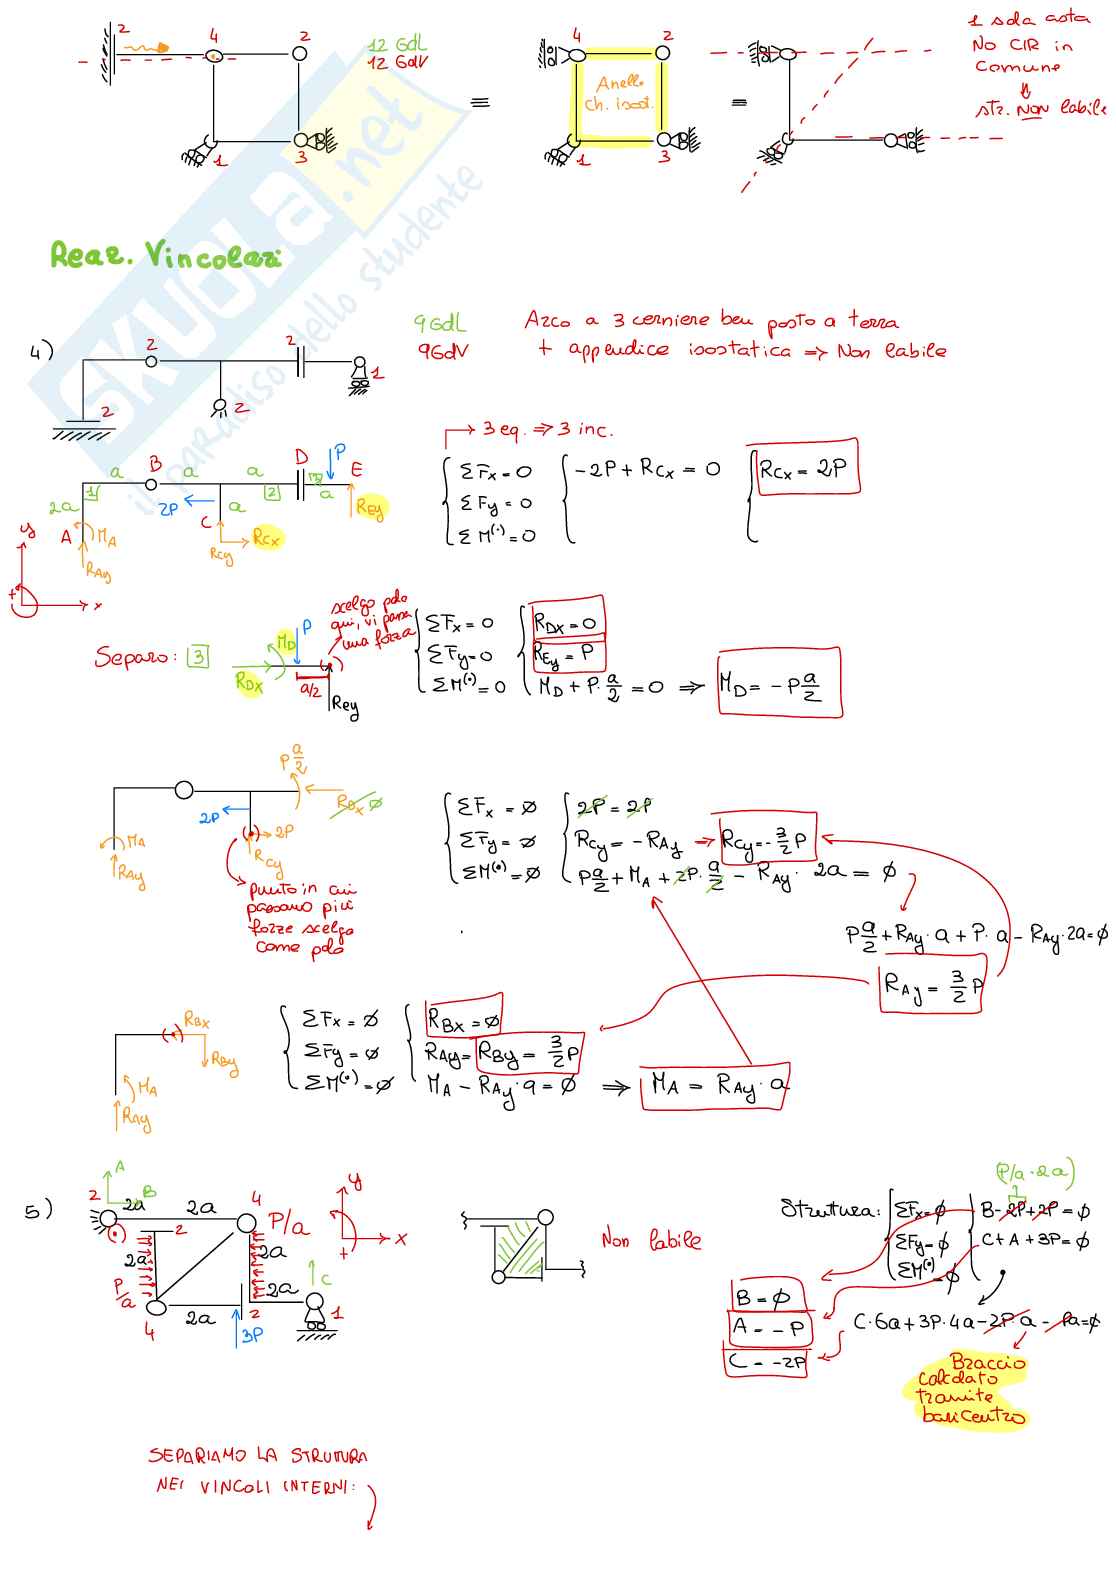 2
4
2
12 GdL
12 GdV
1
3
≡
4
2
Anello
ch. isost.
1
3
=
1 sola asta
No CIR in
Comune
⇓
str. NON labile
SKUOLA.net
il paradiso dello studente
Reaz. Vincolari
4)
2
2
2
2
1
9GdL
9GdV
Arco a 3 cerniere ben posto a terra
+ appendice isostatica ⇒ Non labile
→ 3 eq. ⇒ 3 inc.
a B a a D P E
1 2 3 a
2a 2P a REy
A MA C RCx
RAy RCy
y
+ x
ΣFx = 0
ΣFy = 0
ΣM(·) = 0
-2P + RCx = 0
RCx = 2P
Separo: 3
MD P
RDx a/2
REy
scelgo polo
qui, vi passa
una forza
ΣFx = 0
ΣFy = 0
ΣM(·) = 0
RDx = 0
REy = P
MD + P · a/2 = 0 ⇒ MD = - P a/2
P a/2
RDx ø
2P
MA 2P
RAy RCy
punto in cui
passano più
forze scelgo
come polo
ΣFx = ø
ΣFy = ø
ΣM(·) = ø
2P = 2P
RCy = - RAy → RCy = - 3/2 P
P a/2 + MA + 2P · a/2 - RAy · 2a = ø
P a/2 + RAy · a + P · a - RAy · 2a = ø
RAy = 3/2 P
RBx
RBy
MA
RAy
ΣFx = ø
ΣFy = ø
ΣM(·) = ø
RBx = ø
RAy = RBy = 3/2 P
MA - RAy · a = ø ⇒ MA = RAy · a
5)
A
2 B
2a 2a 4
2 P/a
2a 2a
P/a
4 2a 2 2a C
3P 1
y
+ x
Non labile
Strutura:
ΣFx = ø
ΣFy = ø
ΣM(·) = ø
(P/a · 2a)
B - 2P + 2P = ø
C + A + 3P = ø
C · 6a + 3P · 4a - 2P · a - Pa = ø
B = ø
A = - P
C = - 2P
Braccio
calcolato
tramite
baricentro
SEPARIAMO LA STRUTURA
NEI VINCOLI INTERNI: